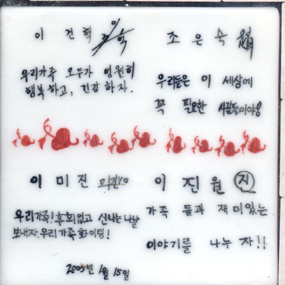 이 건 혁
조 은 옥
우리가족 모두가 영원히
행복하고, 건강하자.
우리들은 이 세상에
꼭 필요한 사람들이야!
이 미 진
이 진 원 진
우리가족! 후회없고 신나는 나날
보내자, 우리가족 화이팅!
가족 들과 재미있는
이야기를 나누 자!!
2005년 1월 15일